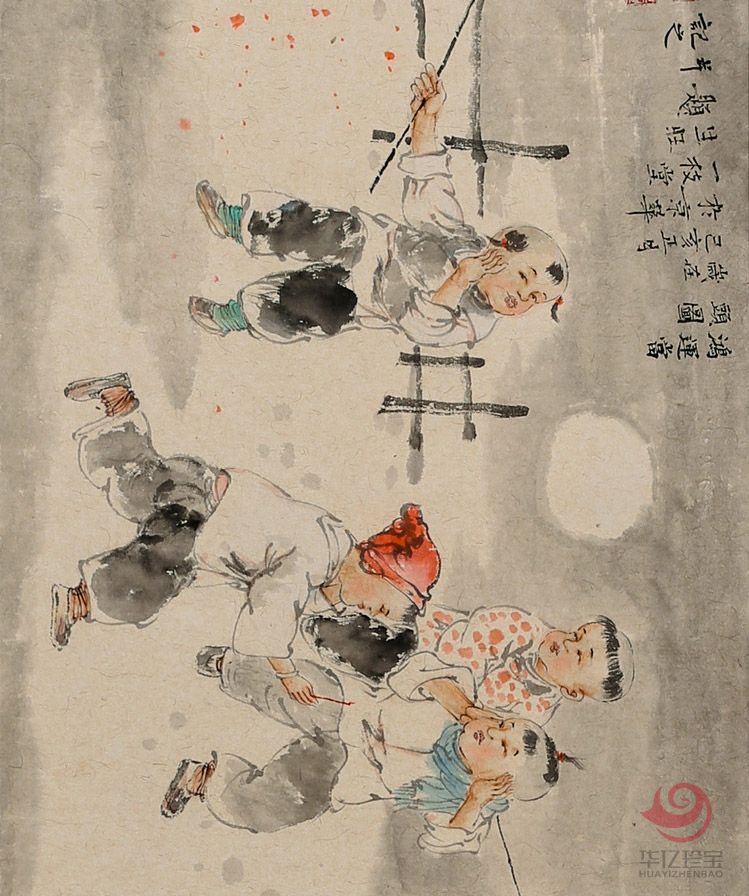 鴻運當
頭圖
歲在
己亥正月
於京華
一枝堂
題
記之
华亿珍宝
HUAYIZHENBAO